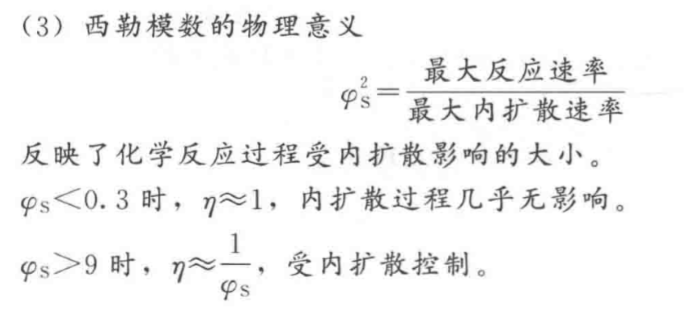 （3）西勒模数的物理意义
φ_S^2=最大反应速率/最大内扩散速率
反映了化学反应过程受内扩散影响的大小。
φ_S<0.3 时，η≈1，内扩散过程几乎无影响。
φ_S>9 时，η≈1/φ_S，受内扩散控制。